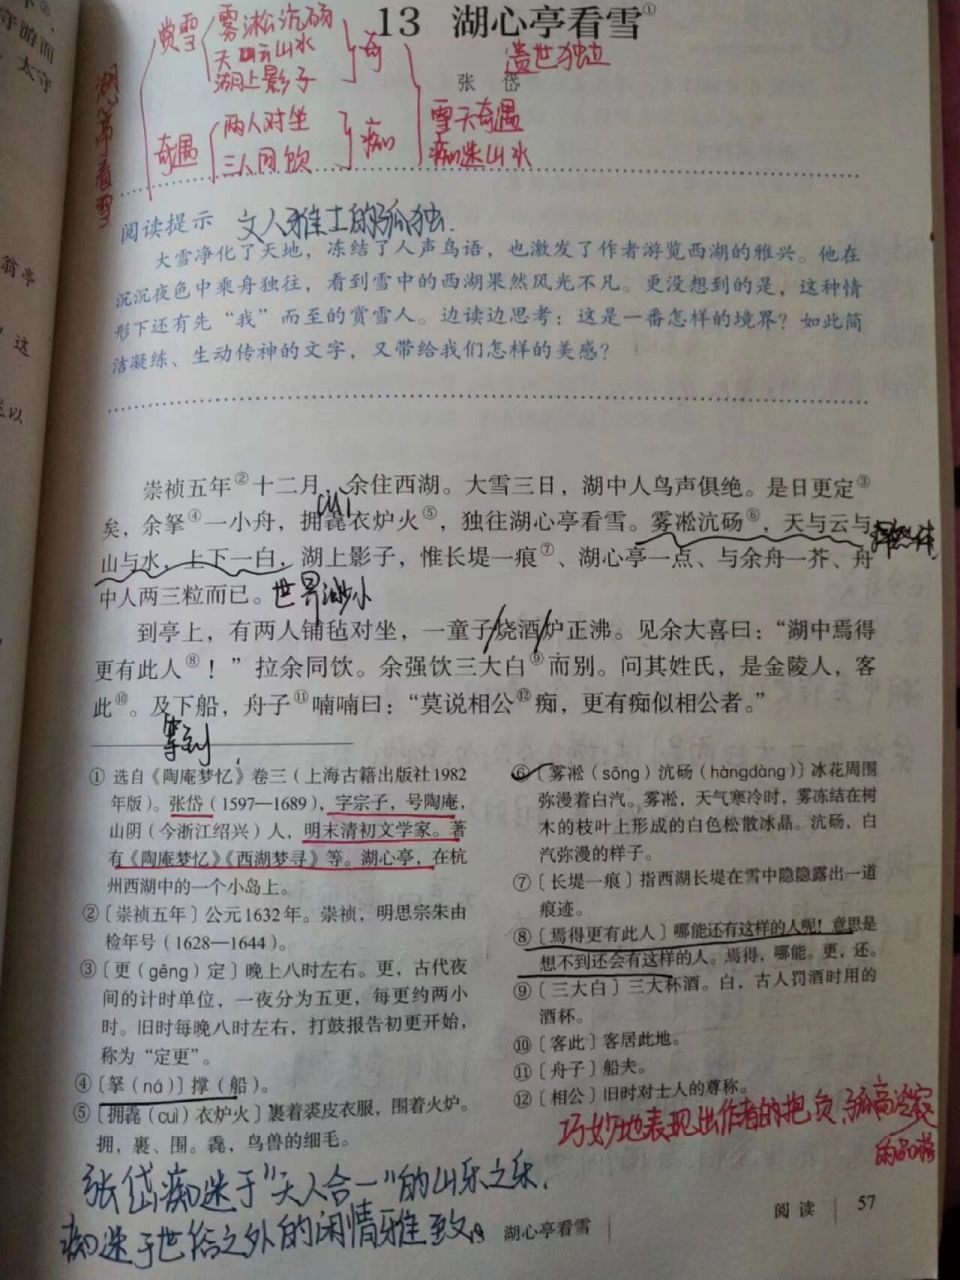 守游而
太守
翁亭
这
以
湖心亭看雪
赏雪
雾凇沆砀
天山云水
湖上影子
奇
奇遇
两人对坐
三人同饮
痴
13 湖心亭看雪①
遗世独立
张 岱
雪天奇遇
痴迷山水
阅读提示 文人雅士的孤独.
大雪净化了天地，冻结了人声鸟语，也激发了作者游览西湖的雅兴。他在
沉沉夜色中乘舟独往，看到雪中的西湖果然风光不凡。更没想到的是，这种情
形下还有先“我”而至的赏雪人。边读边思考：这是一番怎样的境界？如此简
洁凝练、生动传神的文字，又带给我们怎样的美感？
崇祯五年②十二月，余住西湖。大雪三日，湖中人鸟声俱绝。是日更定③
cuì
矣，余拏④一小舟，拥毳衣炉火⑤，独往湖心亭看雪。雾凇沆砀⑥，天与云与
山与水，上下一白，湖上影子，惟长堤一痕⑦、湖心亭一点、与余舟一芥、舟
中人两三粒而已。世界渺小
到亭上，有两人铺毡对坐，一童子/烧酒/炉正沸。见余大喜曰：“湖中焉得
更有此人⑧！”拉余同饮。余强饮三大白⑨而别。问其姓氏，是金陵人，客
此⑩。及下船，舟子⑪喃喃曰：“莫说相公⑫痴，更有痴似相公者。”
等到
① 选自《陶庵梦忆》卷三（上海古籍出版社1982
年版）。张岱（1597—1689），字宗子，号陶庵，
山阴（今浙江绍兴）人，明末清初文学家。著
有《陶庵梦忆》《西湖梦寻》等。湖心亭，在杭
州西湖中的一个小岛上。
②〔崇祯五年〕公元1632年。崇祯，明思宗朱由
检年号（1628—1644）。
③〔更（gēng）定〕晚上八时左右。更，古代夜
间的计时单位，一夜分为五更，每更约两小
时。旧时每晚八时左右，打鼓报告初更开始，
称为“定更”。
④〔拏（ná）〕撑（船）。
⑤〔拥毳（cuì）衣炉火〕裹着裘皮衣服，围着火炉。
拥，裹、围。毳，鸟兽的细毛。
⑥〔雾凇（sōng）沆砀（hàngdàng）〕冰花周围
弥漫着白汽。雾凇，天气寒冷时，雾冻结在树
木的枝叶上形成的白色松散冰晶。沆砀，白
汽弥漫的样子。
⑦〔长堤一痕〕指西湖长堤在雪中隐隐露出一道
痕迹。
⑧〔焉得更有此人〕哪能还有这样的人呢！意思是
想不到还会有这样的人。焉得，哪能。更，还。
⑨〔三大白〕三大杯酒。白，古人罚酒时用的
酒杯。
⑩〔客此〕客居此地。
⑪〔舟子〕船夫。
⑫〔相公〕旧时对士人的尊称。
巧妙地表现出作者的抱负、孤高冷寂
的品格
张岱痴迷于“天人合一”的山乐之乐.
痴迷于世俗之外的闲情雅致
湖心亭看雪
阅读 57